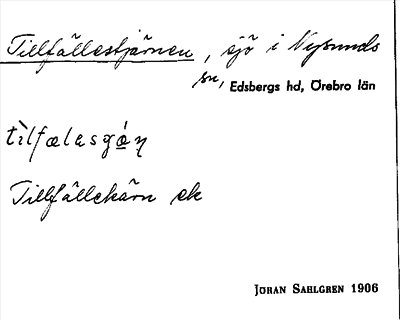 Tillfällestjärnen, sjö i Nysunds
sn, Edsbergs hd, Örebro län
Tillfällekärn ek
JÖRAN SAHLGREN 1906